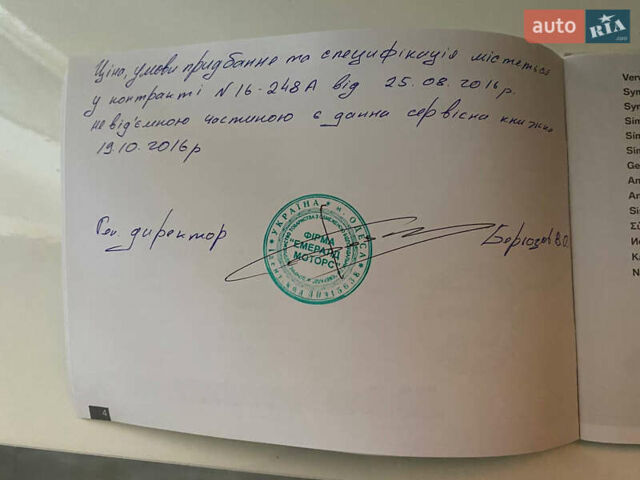 auto RIA .com
Ціна, умови придбання та специфікація містеться
у контракті N 16-248А від 25.08.2016р.
невід'ємною частиною є данна сервісна книжка
19.10.2016р
Ген. директор
УКРАЇНА м. ОДЕСА
ФІРМА
"ЕМЕРАЛД
МОТОРС"
4
Ven
Sym
Syn
Sim
Sim
Sim
Ge
An
Ar
Si
Σύ
Ис
Ka
N